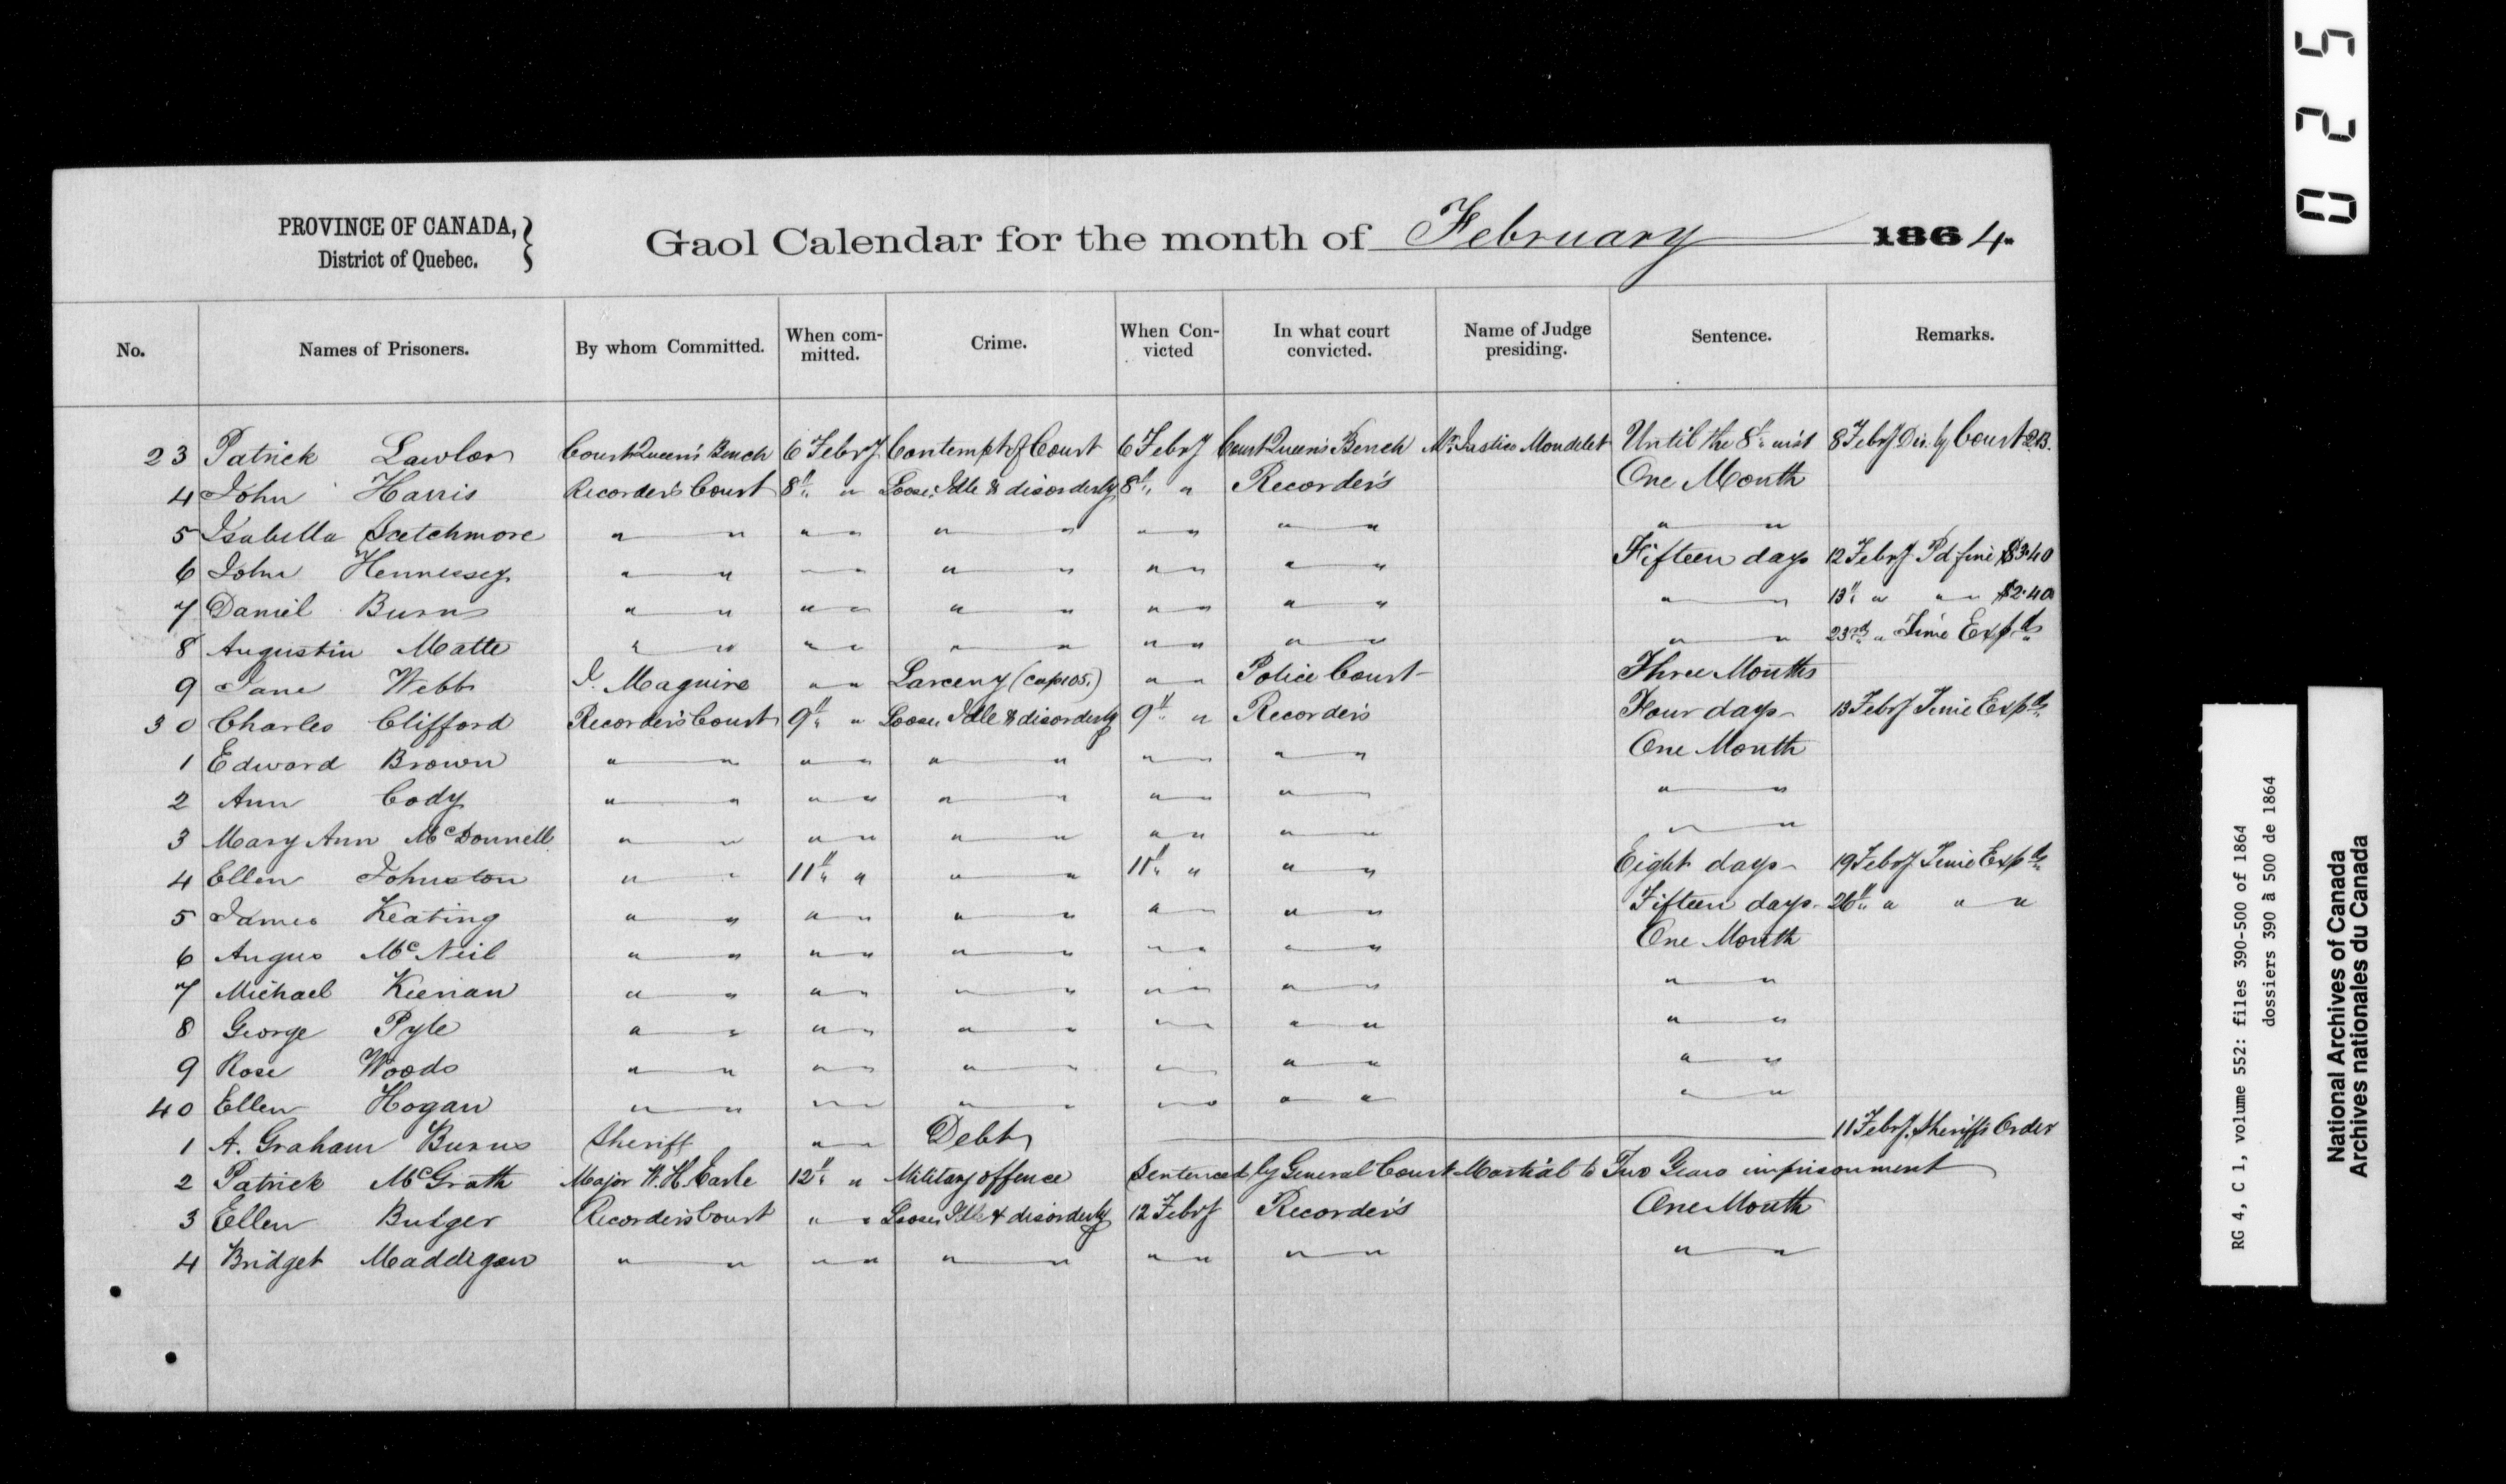 PROVINCE OF CANADA,
District of Quebec.
Gaol Calendar for the month of February 1864.
No. Names of Prisoners. By whom Committed. When com-mitted. Crime. When Con-victed In what court convicted. Name of Judge presiding. Sentence. Remarks.
23 Patrick Lawlor Court Queen's Bench 6 Febry Contempt of Court 6 Febry Court Queen's Bench Mr. Justice Mondelet Until the 8th inst 8 Febry Dis. by Court Q.B.
4 John Harris Recorder's Court 8th " Loose, Idle & disorderly 8th " Recorder's One Month
5 Isabella Scetchmore " " " " " " " " " " " "
6 John Hennessey " " " " " " " " " " Fifteen days 12 Febry Pd fine $3.40
7 Daniel Burns " " " " " " " " " " " " 13th " " " $2.40
8 Augustin Matte " " " " " " " " " " " " 23rd " Time Expd
9 Jane Webb J. Maguire " " Larceny (cap 105.) " " Police Court Three Months
30 Charles Clifford Recorder's Court 9th " Loose, Idle & disorderly 9th " Recorder's Four days 13 Febry Time Expd
1 Edward Brown " " " " " " " " " " One Month
2 Ann Cody " " " " " " " " " " " "
3 Mary Ann McDonnell " " " " " " " " " " " "
4 Ellen Johnston " " 11th " " " 11th " " " Eight days 19 Febry Time Expd
5 James Keating " " " " " " " " " " Fifteen days 26th " " "
6 Angus McNeil " " " " " " " " " " One Month
7 Michael Kienan " " " " " " " " " " " "
8 George Pyle " " " " " " " " " " " "
9 Rose Woods " " " " " " " " " " " "
40 Ellen Hogan " " " " " " " " " " " "
1 A. Graham Burns Sheriff " " Debt 11 Febry. Sheriff's Order
2 Patrick McGrath Major W. H. Earle 12th " Military offence Sentenced by General Court Martial to Two Years imprisonment
3 Ellen Butger Recorder's Court " " Loose, Idle & disorderly 12 Febry Recorder's One Month
4 Bridget Maddigan " " " " " " " " " " " "
025
RG 4, C 1, volume 552: files 390-500 of 1864
dossiers 390 à 500 de 1864
National Archives of Canada
Archives nationales du Canada